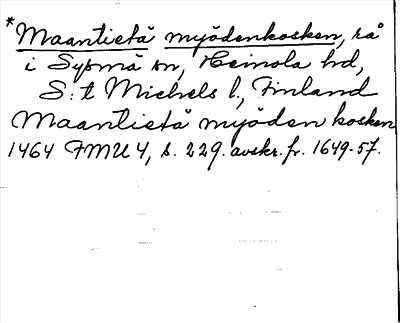 *Maantietä myödenkosken, rå
i Sysmä sn, Heinola hd,
S:t Michels l., Finland
Maantietä myöden kosken
1464 FMU 4, s. 229. avskr. fr. 1649-57.